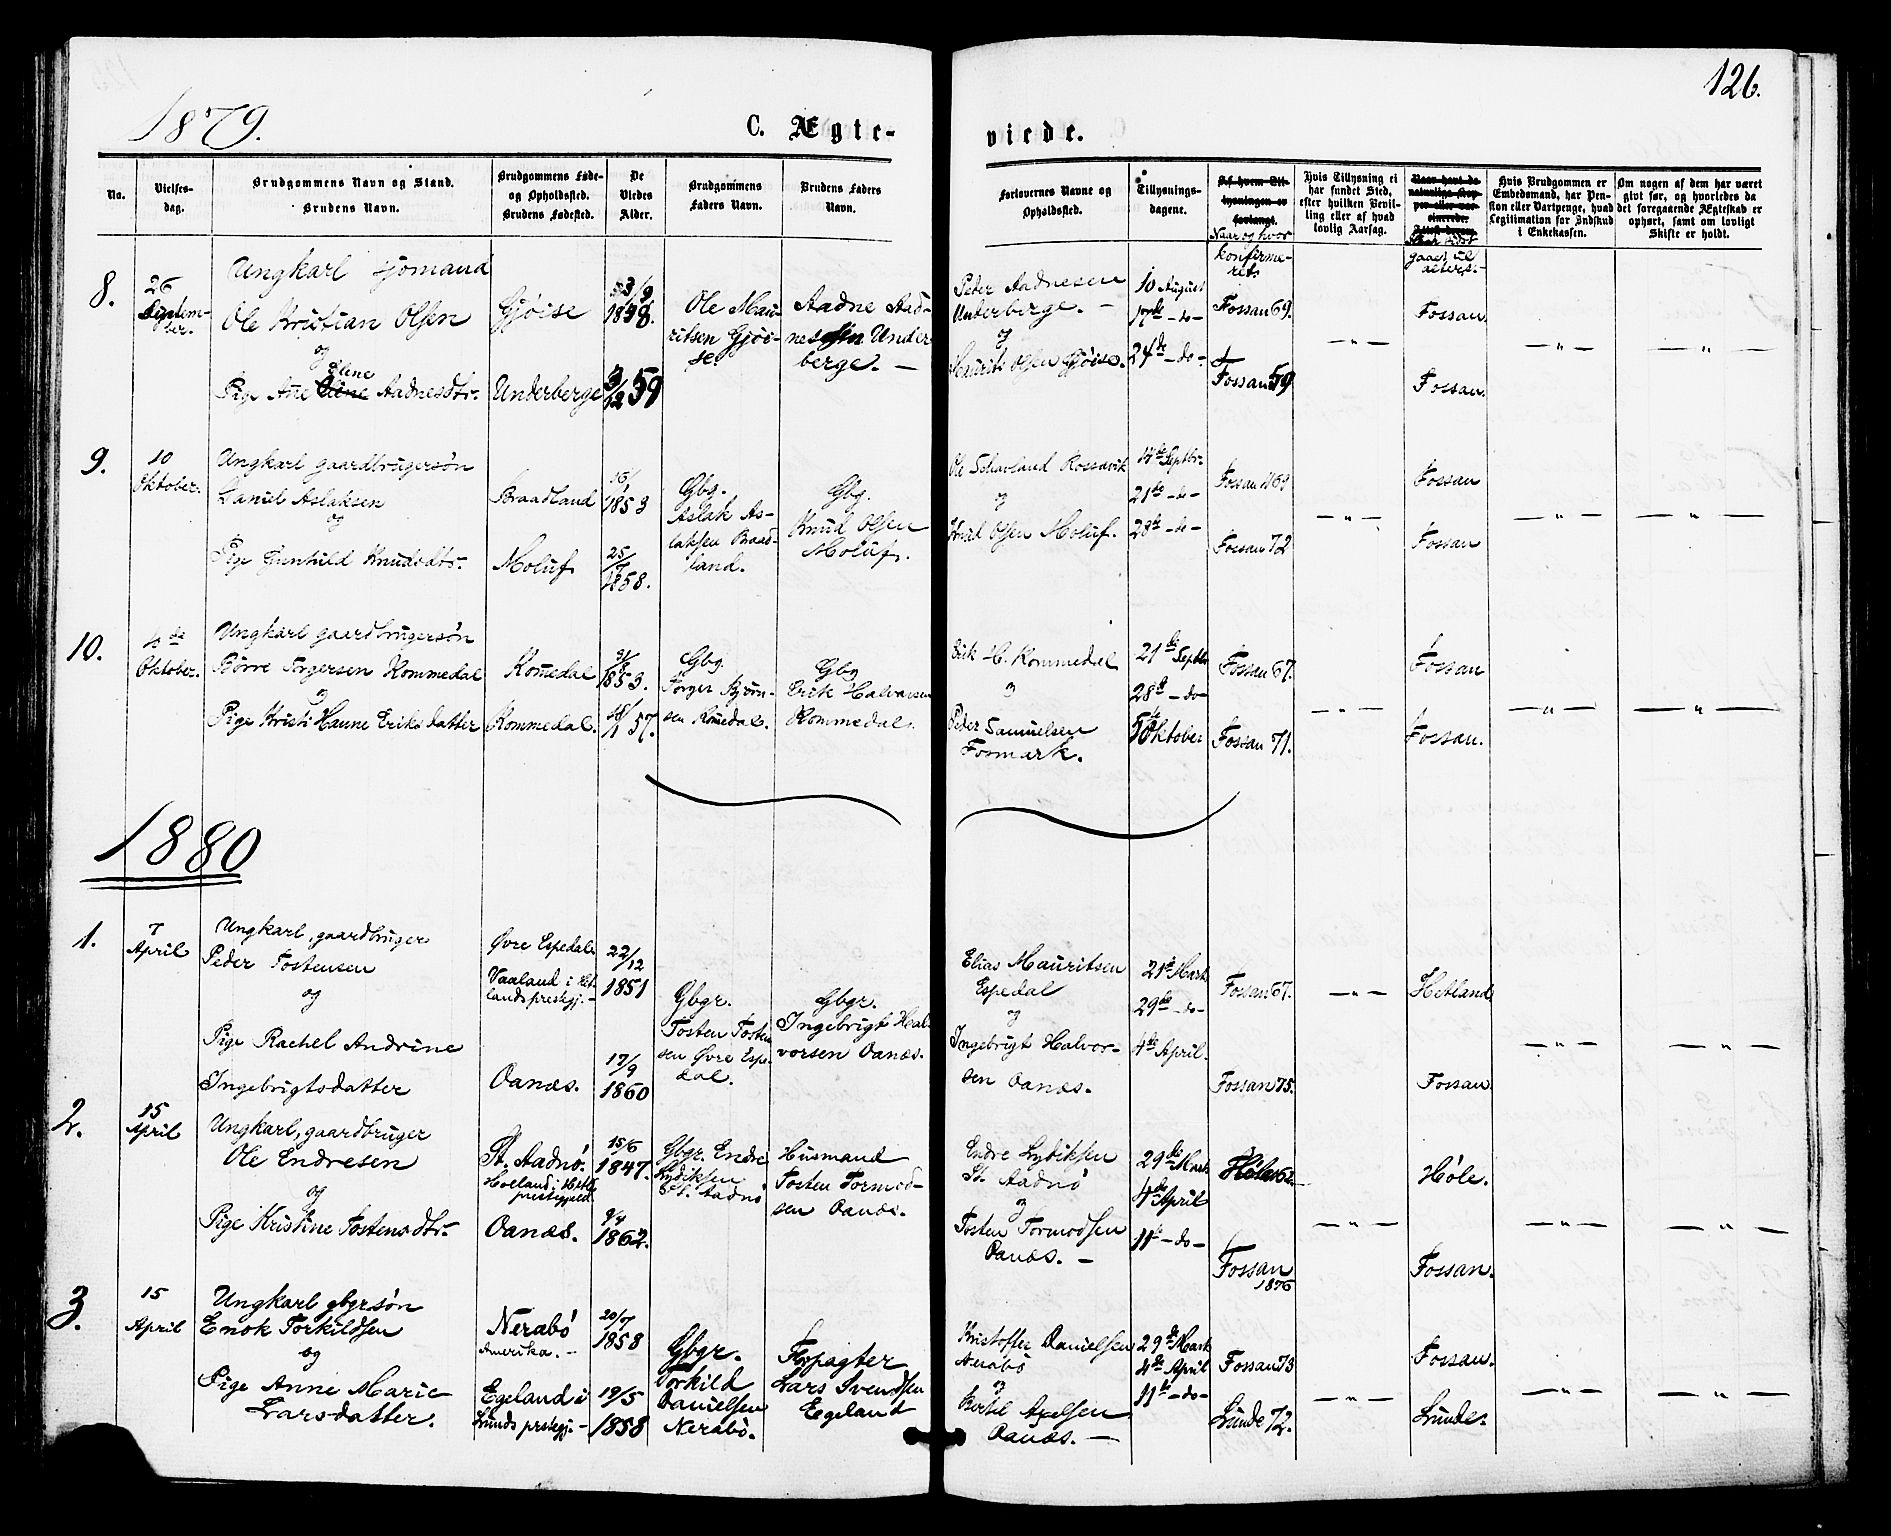 126.
1879.
C. Ægte-
viede.
No.
Vielses-
dag.
Brudgommens Navn og Stand.
Brudens Navn.
Brudgommens Føde-
og Opholdssted.
Brudens Fødested.
De
Viedes
Alder.
Brudgommens
Faders Navn.
Brudens Faders
Navn.
Forlovernes Navne og
Opholdssted.
Tillysnings-
dagene.
Af hvem Til-
lysningen er
forlangt.
Naar og hvor
konfirme-
rets
Hvis Tillysning ei
har fundet Sted,
efter hvilken Bevil-
ling eller af hvad
lovlig Aarsag.
Naar havt de
naturlige Kop-
per eller vac-
cinerede.
Attest derom.
gaaet til
alters.-
Hvis Brudgommen er
Embedsmand, har Pen-
sion eller Vartpenge, hvad
Legitimation for Indskud
i Enkekassen.
Om nogen af dem har været
givt før, og hvorledes da
det foregaaende Ægteskab er
ophørt, samt om lovligt
Skifte er holdt.
8.
26
Septem-
ber.
Ungkarl sjømand
Ole Kristian Olsen
og
Eline
Pige Ane Aadnesdtr.
Gjøise
Underberge
3/9
1858.
/12 59
Ole Mau-
ritsen Gjøi-
se.
Aadne Aad-
nessen Under
berge. —
Peter Aadnesen
Underberge. —
og
Maurits Olsen Gjøise.
10 August
17de - do -
24de - do -
Fossan 69.
Fossan 59
— " —
Fossan.
Fossan.
— " —
— " —
9.
10
Oktober.
Ungkarl gaardbrugersøn
Daniel Aslaksen
og
Pige Gunhild Knudsdtr.
Braadland
Moluf
16/1
1853
25/7
1858.
Gbg.
Aslak As-
laksen Braad-
land.
Gbg.
Knud Olsen
Moluf.
Ole Rossavik
og
Knud Olsen Moluf.
14de Septbr.
21de - do -
28de - do -
Fossan 69
Fossan 72
— " —
Fossan
Fossan
— " —
— " —
10.
Oktober.
Ungkarl gaardbrugersøn
Børre Torgersen Rommedal
og
Pige Kristi Hanne Eriksdatter
Romedal
Rommedal.
31/8
1853.
18/1 57.
Gbg.
Torger Bjørn-
sen Romedal.
Gbg
Erik Halvorsen
Rommedal.
Erik H. Rommedal
og
Peder Samuelsen
Fosmark.
21de Septbr
28de - do -
5te Oktober
Fossan 67.
Fossan 71.
— " —
Fossan
Fossan.
— " —
— " —
1880
1.
7
April
Ungkarl, gaardbruger
Peder Tostensen
og
Pige Rachel Andrine
Ingebrigtsdatter
Øvre Espedal
Vaaland i Het-
lands prestgj. -
Oanæs.
22/12
1851
17/9
1860
Gbgr.
Tosten Tosten
sen Øvre Espe-
dal.
Gbgr.
Ingebrigt Hal-
vorsen Oanæs.
Elias Mauritsen
Espedal
og
Ingebrigt Halvor-
sen Oanæs.
21de Marts
29de - do -
4de April.
Fossan 67.
Fossan 75.
— " —
Hetland
Fossan
— " —
— " —
2.
15
April
Ungkarl, gaardbruger
Ole Endresen
og
Pige Kristine Tostensdtr.
St. Aadnø.
Hoeland i Hetl.
prestegjeld
Oanæs.
15/6
1847.
9/4
1862.
Gbgr. Endre
Lydiksen
St. Aadnø
Husmand
Tosten Tormod-
sen Oanæs.
Endre Lydiksen
St. Aadnø
og
Tosten Tormodsen
Oanæs. —
29de Marts
4de April
11te - do -
Høle 62
Fossan
1876
— " —
Høle.
Fossan.
— " —
— " —
3.
15
April
Ungkarl gbgrsøn
Enok Torkildsen
og
Pige Anne Marie
Larsdatter.
Nerabø
Amerika. -
Egeland i
Lunds prstegj. -
20/7
1858
19/5
1858
Gbgr.
Torkild
Danielsen
Nerabø.
Forpagter
Lars Svendsen
Egeland
Kristoffer Danielsen
Nerabø
og
Bertel Axelsen
Oanæs. —
29de Marts
4de April
11te - do -
Fossan 73
Lunde 72.
— " —
Fossan.
Lunde.
— " —
— " —